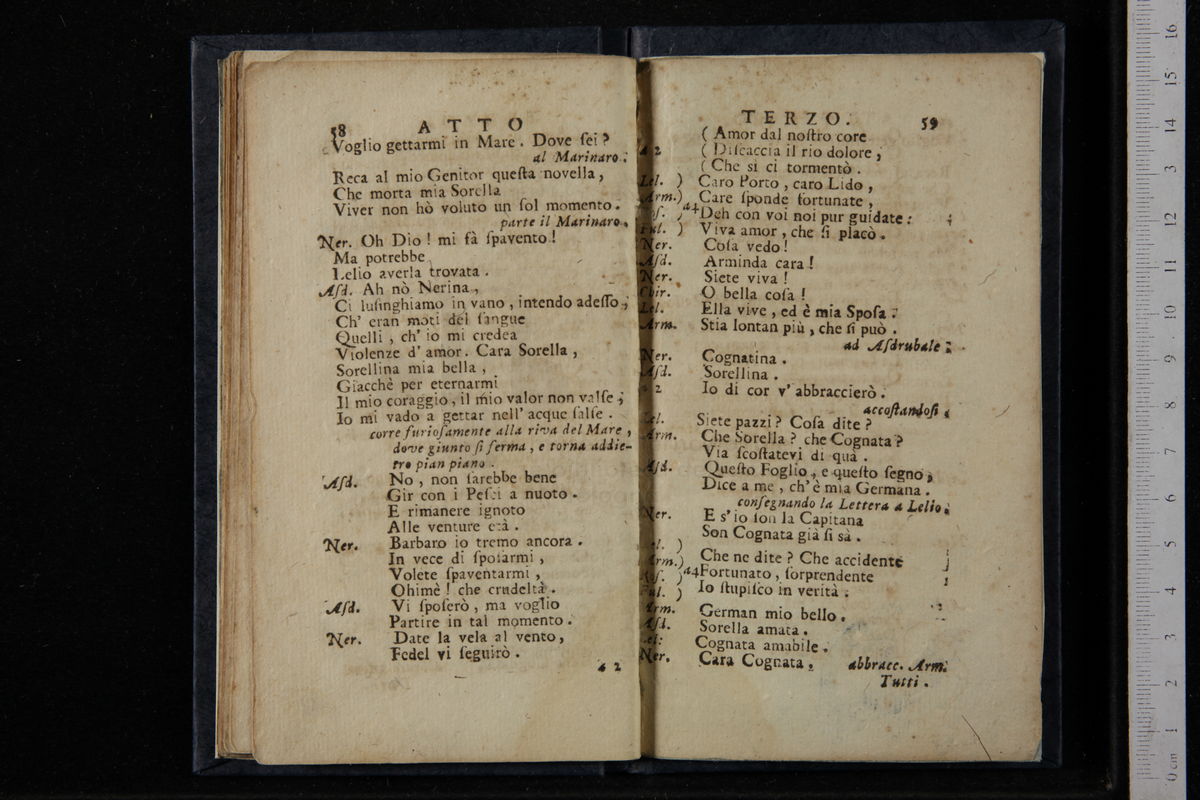 58 ATTO
Voglio gettarmi in Mare. Dove ſei?
al Marinaro.
Reca al mio Genitor queſta novella,
Che morta mia Sorella
Viver non hò voluto un ſol momento.
parte il Marinaro,
Ner. Oh Dio! mi fà ſpavento!
Ma potrebbe
Lelio averla trovata.
Aſd. Ah nò Nerina,
Ci luſinghiamo in vano, intendo adeſſo,
Ch' eran moti del ſangue
Quelli, ch' io mi credea
Violenze d' amor. Cara Sorella,
Sorellina mia bella,
Giacchè per eternarmi
Il mio coraggio, il mio valor non valſe,
Io mi vado a gettar nell' acque ſalſe.
corre furioſamente alla riva del Mare,
dove giunto ſi ferma, e torna addie-
tro pian piano.
Aſd. No, non ſarebbe bene
Gir con i Peſci a nuoto.
E rimanere ignoto
Alle venture età.
Ner. Barbaro io tremo ancora.
In vece di ſpoſarmi,
Volete ſpaventarmi,
Ohimè! che crudeltà.
Aſd. Vi ſpoſerò, ma voglio
Partire in tal momento.
Ner. Date la vela al vento,
Fedel vi ſeguirò.
a 2
TERZO. 59
( Amor dal noſtro core
a 2 ( Diſcaccia il rio dolore,
( Che sì ci tormentò.
Lel. ) Caro Porto, caro Lido,
Arm.) Care ſponde fortunate,
Roſ. ) a4 Deh con voi noi pur guidate:
Ful. ) Viva amor, che ſi placò.
Ner. Coſa vedo!
Aſd. Arminda cara!
Ner. Siete viva!
Chir. O bella coſa!
Lel. Ella vive, ed è mia Spoſa.
Arm. Stia lontan più, che ſi può.
ad Aſdrubale.
Ner. Cognatina.
Aſd. Sorellina.
a 2 Io di cor v' abbraccierò.
accoſtandoſi.
Lel. Siete pazzi? Coſa dite?
Arm. Che Sorella? che Cognata?
Via ſcoſtatevi di quà.
Aſd. Queſto Foglio, e queſto ſegno,
Dice a me, ch' è mia Germana.
conſegnando la Lettera a Lelio.
Ner. E s' io ſon la Capitana
Son Cognata già ſi sà.
Lel. )
Arm.) Che ne dite? Che accidente
Roſ. ) a4 Fortunato, ſorprendente
Ful. ) Io ſtupiſco in verità.
Arm. German mio bello.
Aſd. Sorella amata.
Lel: Cognata amabile.
Ner. Cara Cognata, abbracc. Arm.
Tutti.